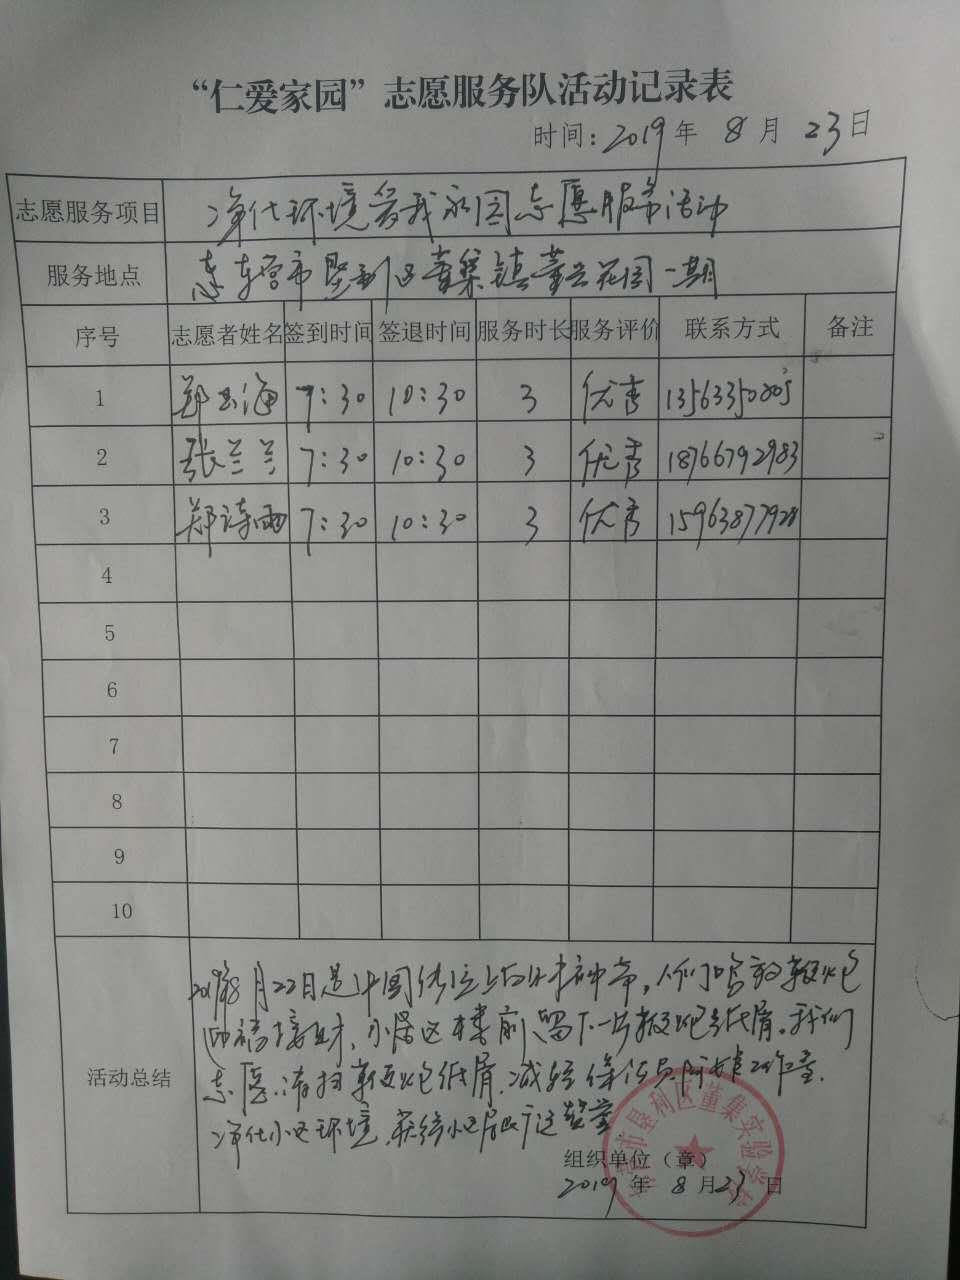 “仁爱家园”志愿服务队活动记录表
时间：2019年 8月 23日
志愿服务项目 净化环境爱我家园志愿服务活动
服务地点 东营市垦利区董集镇董兰花园一期
序号 志愿者姓名 签到时间 签退时间 服务时长 服务评价 联系方式 备注
1 郑 海 7:30 10:30 3 优秀 13563350805
2 张兰兰 7:30 10:30 3 优秀 18766792983
3 郑诗雨 7:30 10:30 3 优秀 15963877928
4
5
6
7
8
9
10
活动总结
2019年8月22日是中国传统上的 财神节，人们鸣放鞭炮
迎福接财，小区楼前留下一片鞭炮纸屑。我们
志愿 清扫鞭炮纸屑，减轻保洁员 工作量，
净化小区环境，获得小区居民广泛赞誉
组织单位（章）
2019年 8月23日
市垦利区董集实验学校